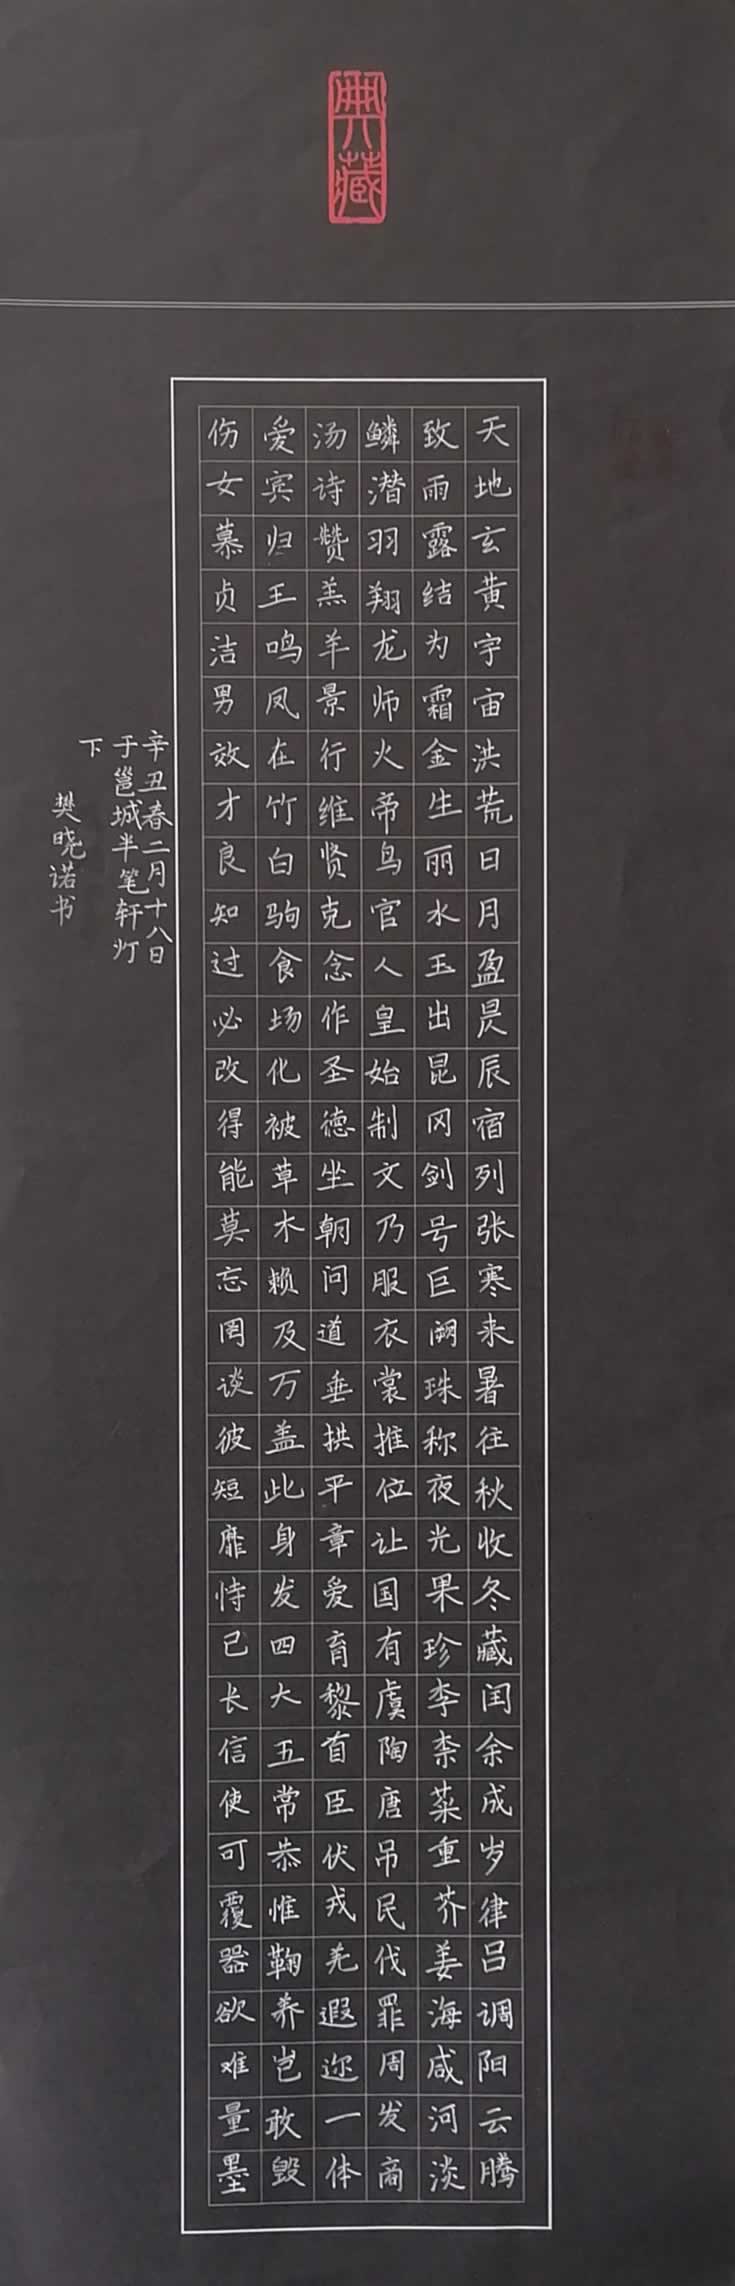 典藏
天地玄黄宇宙洪荒日月盈昃辰宿列张寒来暑往秋收冬藏闰余成岁律吕调阳云腾
致雨露结为霜金生丽水玉出昆冈剑号巨阙珠称夜光果珍李柰菜重芥姜海咸河淡
鳞潜羽翔龙师火帝鸟官人皇始制文乃服衣裳推位让国有虞陶唐吊民伐罪周发商
汤诗赞羔羊景行维贤克念作圣德坐朝问道垂拱平章爱育黎首臣伏戎羌遐迩一体
爱宾归王鸣凤在竹白驹食场化被草木赖及万盖此身发四大五常恭惟鞠养岂敢毁
伤女慕贞洁男效才良知过必改得能莫忘罔谈彼短靡恃己长信使可覆器欲难量墨
辛丑春二月十八日
于邕城半笔轩灯
下
樊晓诺书